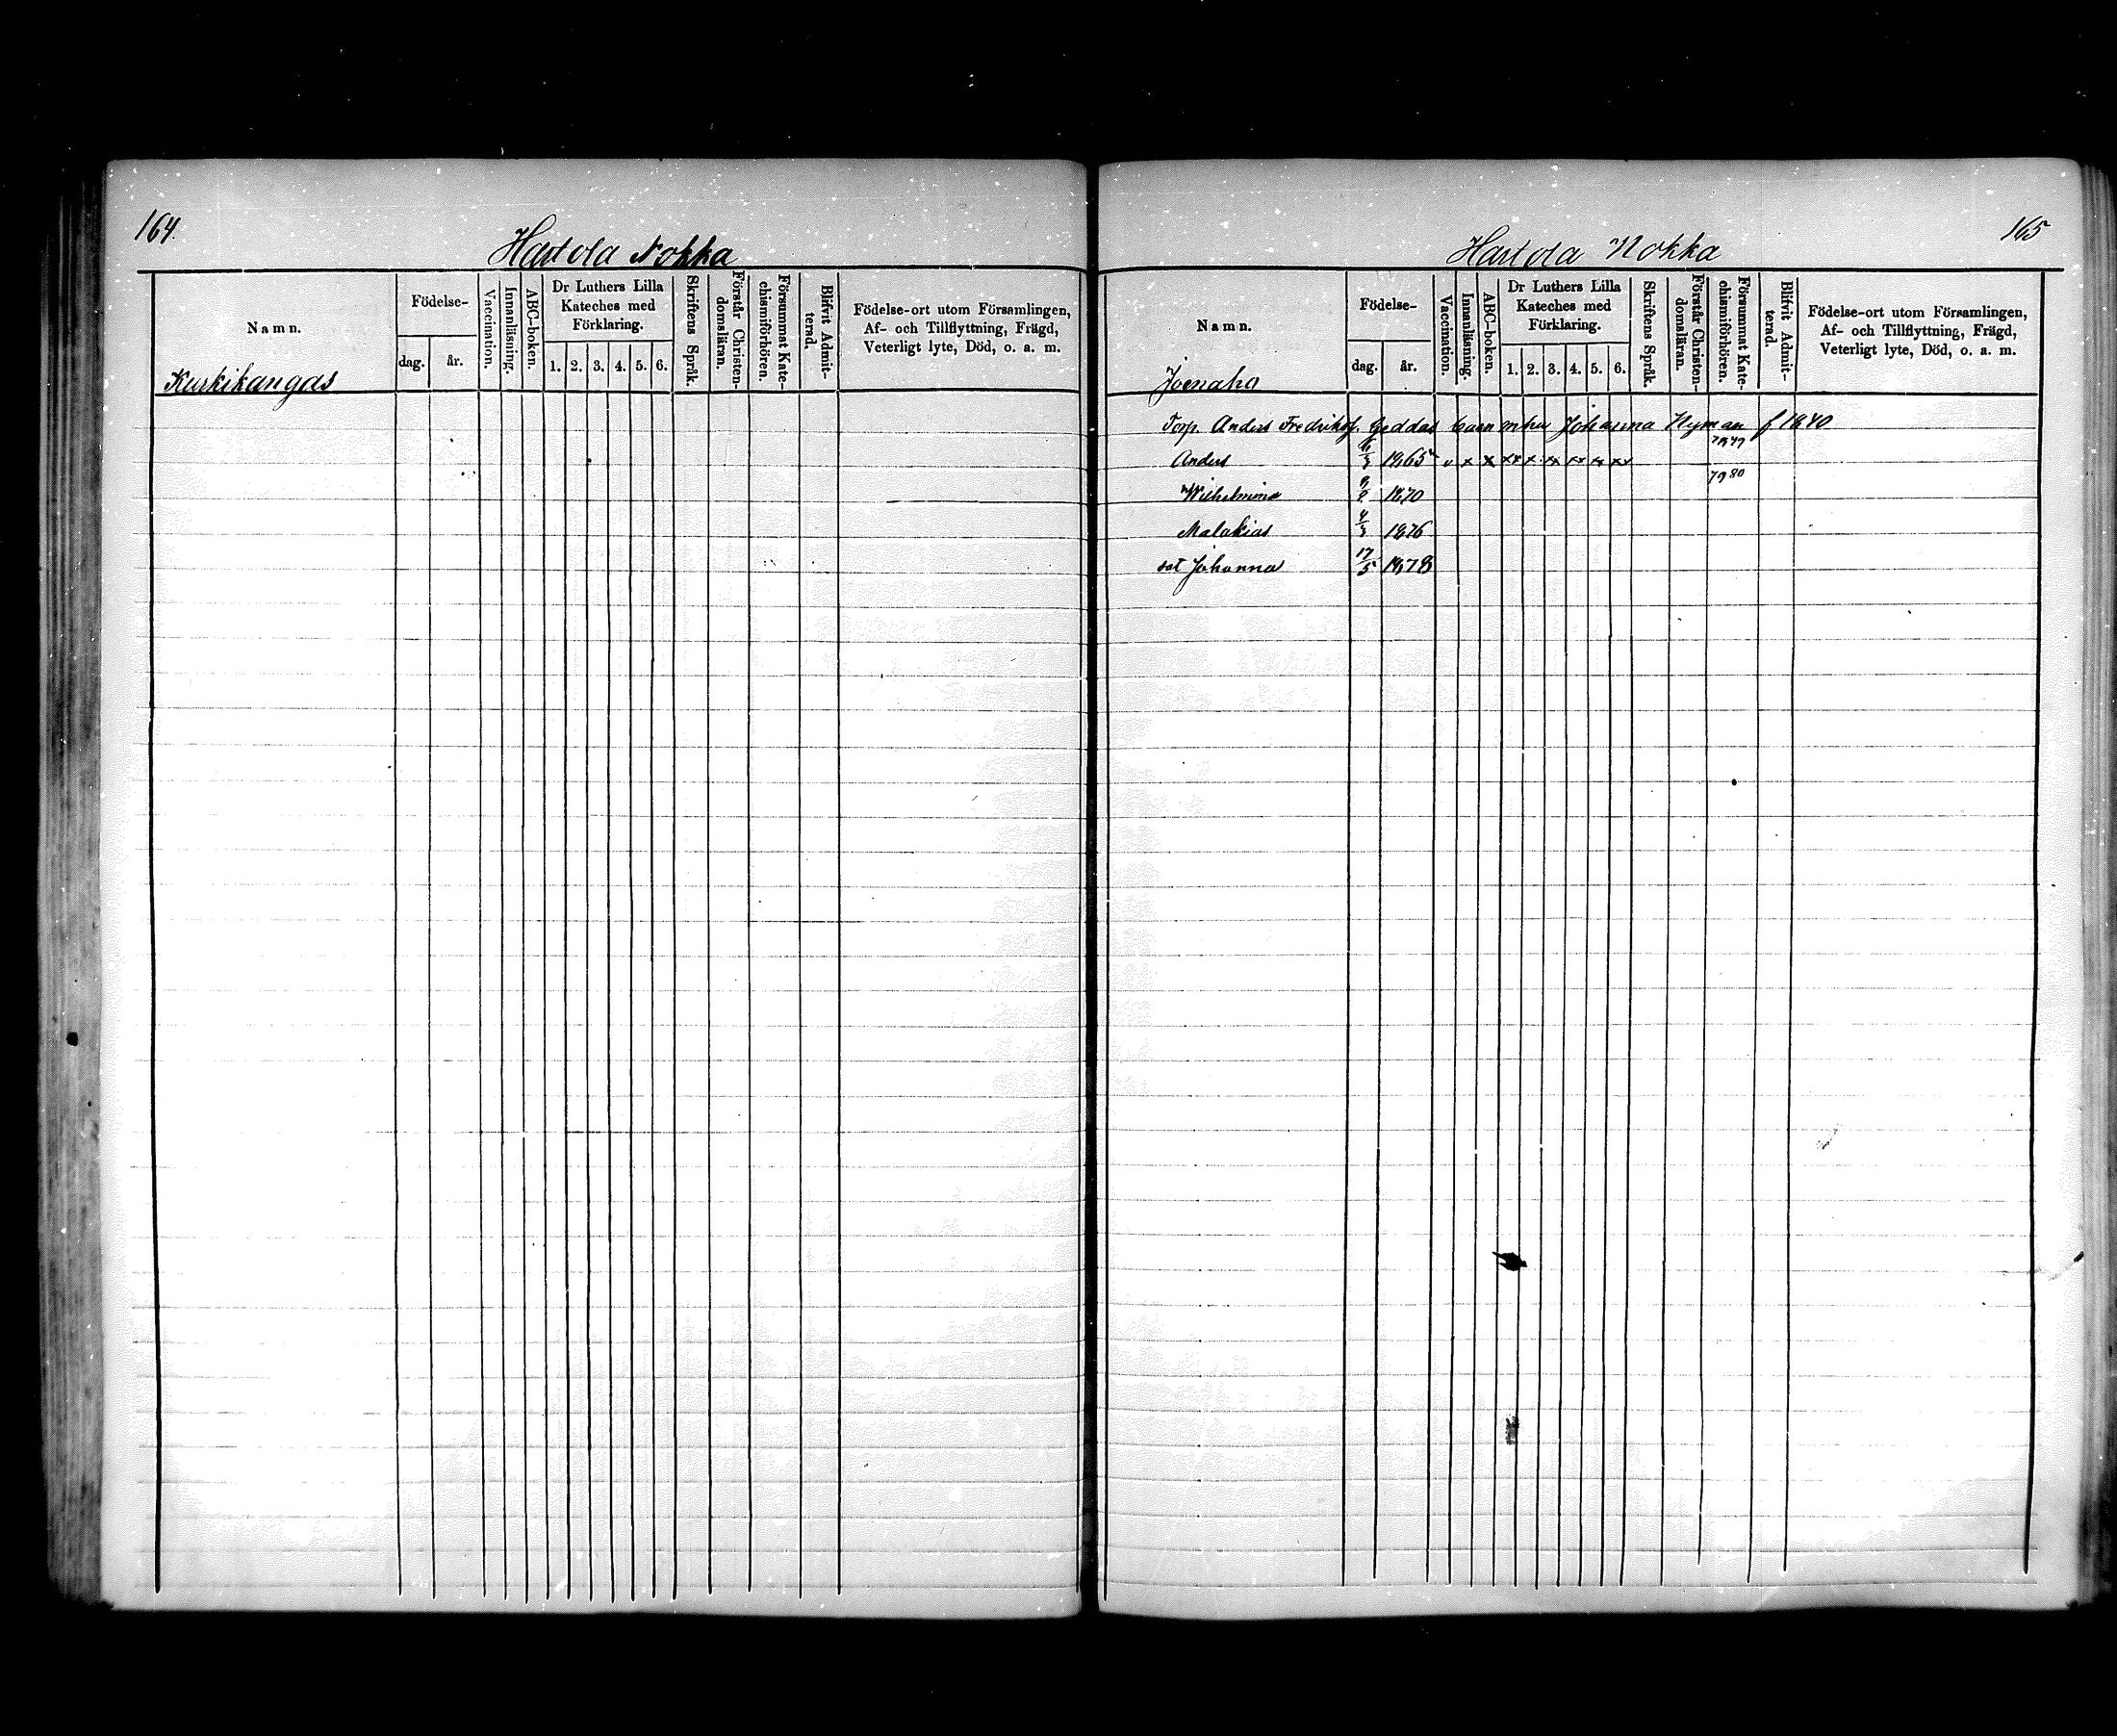 164.
Hartola Nokka
Namn.
Födelse-
dag.
år.
Vaccination.
Innanläsning.
ABC-boken.
Dr Luthers Lilla
Kateches med
Förklaring.
1. 2. 3. 4. 5. 6.
Skriftens Språk.
Förstår Christen-
domsläran.
Försummat Kate-
chismiförhören.
Blifvit Admit-
terad.
Födelse-ort utom Församlingen,
Af- och Tillflyttning, Frägd,
Veterligt lyte, Död, o. a. m.
Kurkikangas
165
Hartola Nokka
Namn.
Födelse-
dag.
år.
Vaccination.
Innanläsning.
ABC-boken.
Dr Luthers Lilla
Kateches med
Förklaring.
1. 2. 3. 4. 5. 6.
Skriftens Språk.
Förstår Christen-
domsläran.
Försummat Kate-
chismiförhören.
Blifvit Admit-
terad.
Födelse-ort utom Församlingen,
Af- och Tillflyttning, Frägd,
Veterligt lyte, Död, o. a. m.
Joenaho
Torp. Anders Fredriksf. Geddas barn m hu Johanna Nyman f 1840
Anders 1865 v x x xx x xx xx xx xx
79 80
Wilhelmina 1870
Malakias 4/3 1876
oät Johanna 17/5 1878